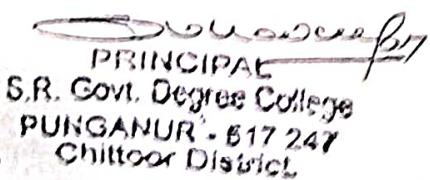 PRINCIPAL
S.R. Govt. Degree College
PUNGANUR - 517 247
Chittoor District